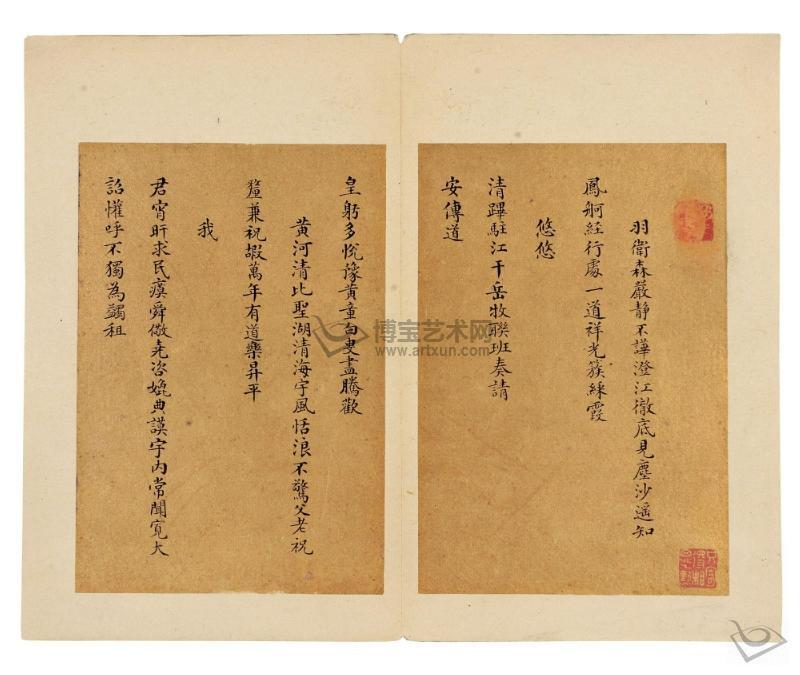 羽衛森嚴靜不譁澄江徹底見塵沙遥知
鳳舸經行處一道祥光簇綵霞
悠悠
清蹕駐江干岳牧聯班奏請
安傳道
皇躬多悦豫黄童白叟盡騰歡
黄河清比聖湖清海宇風恬浪不驚父老祝
釐兼祝嘏萬年有道樂昇平
我
君宵旰求民瘼舜儆堯咨媲典謨宇内常聞寬大
詔懽呼不獨為蠲租
博宝艺术网
www.artxun.com